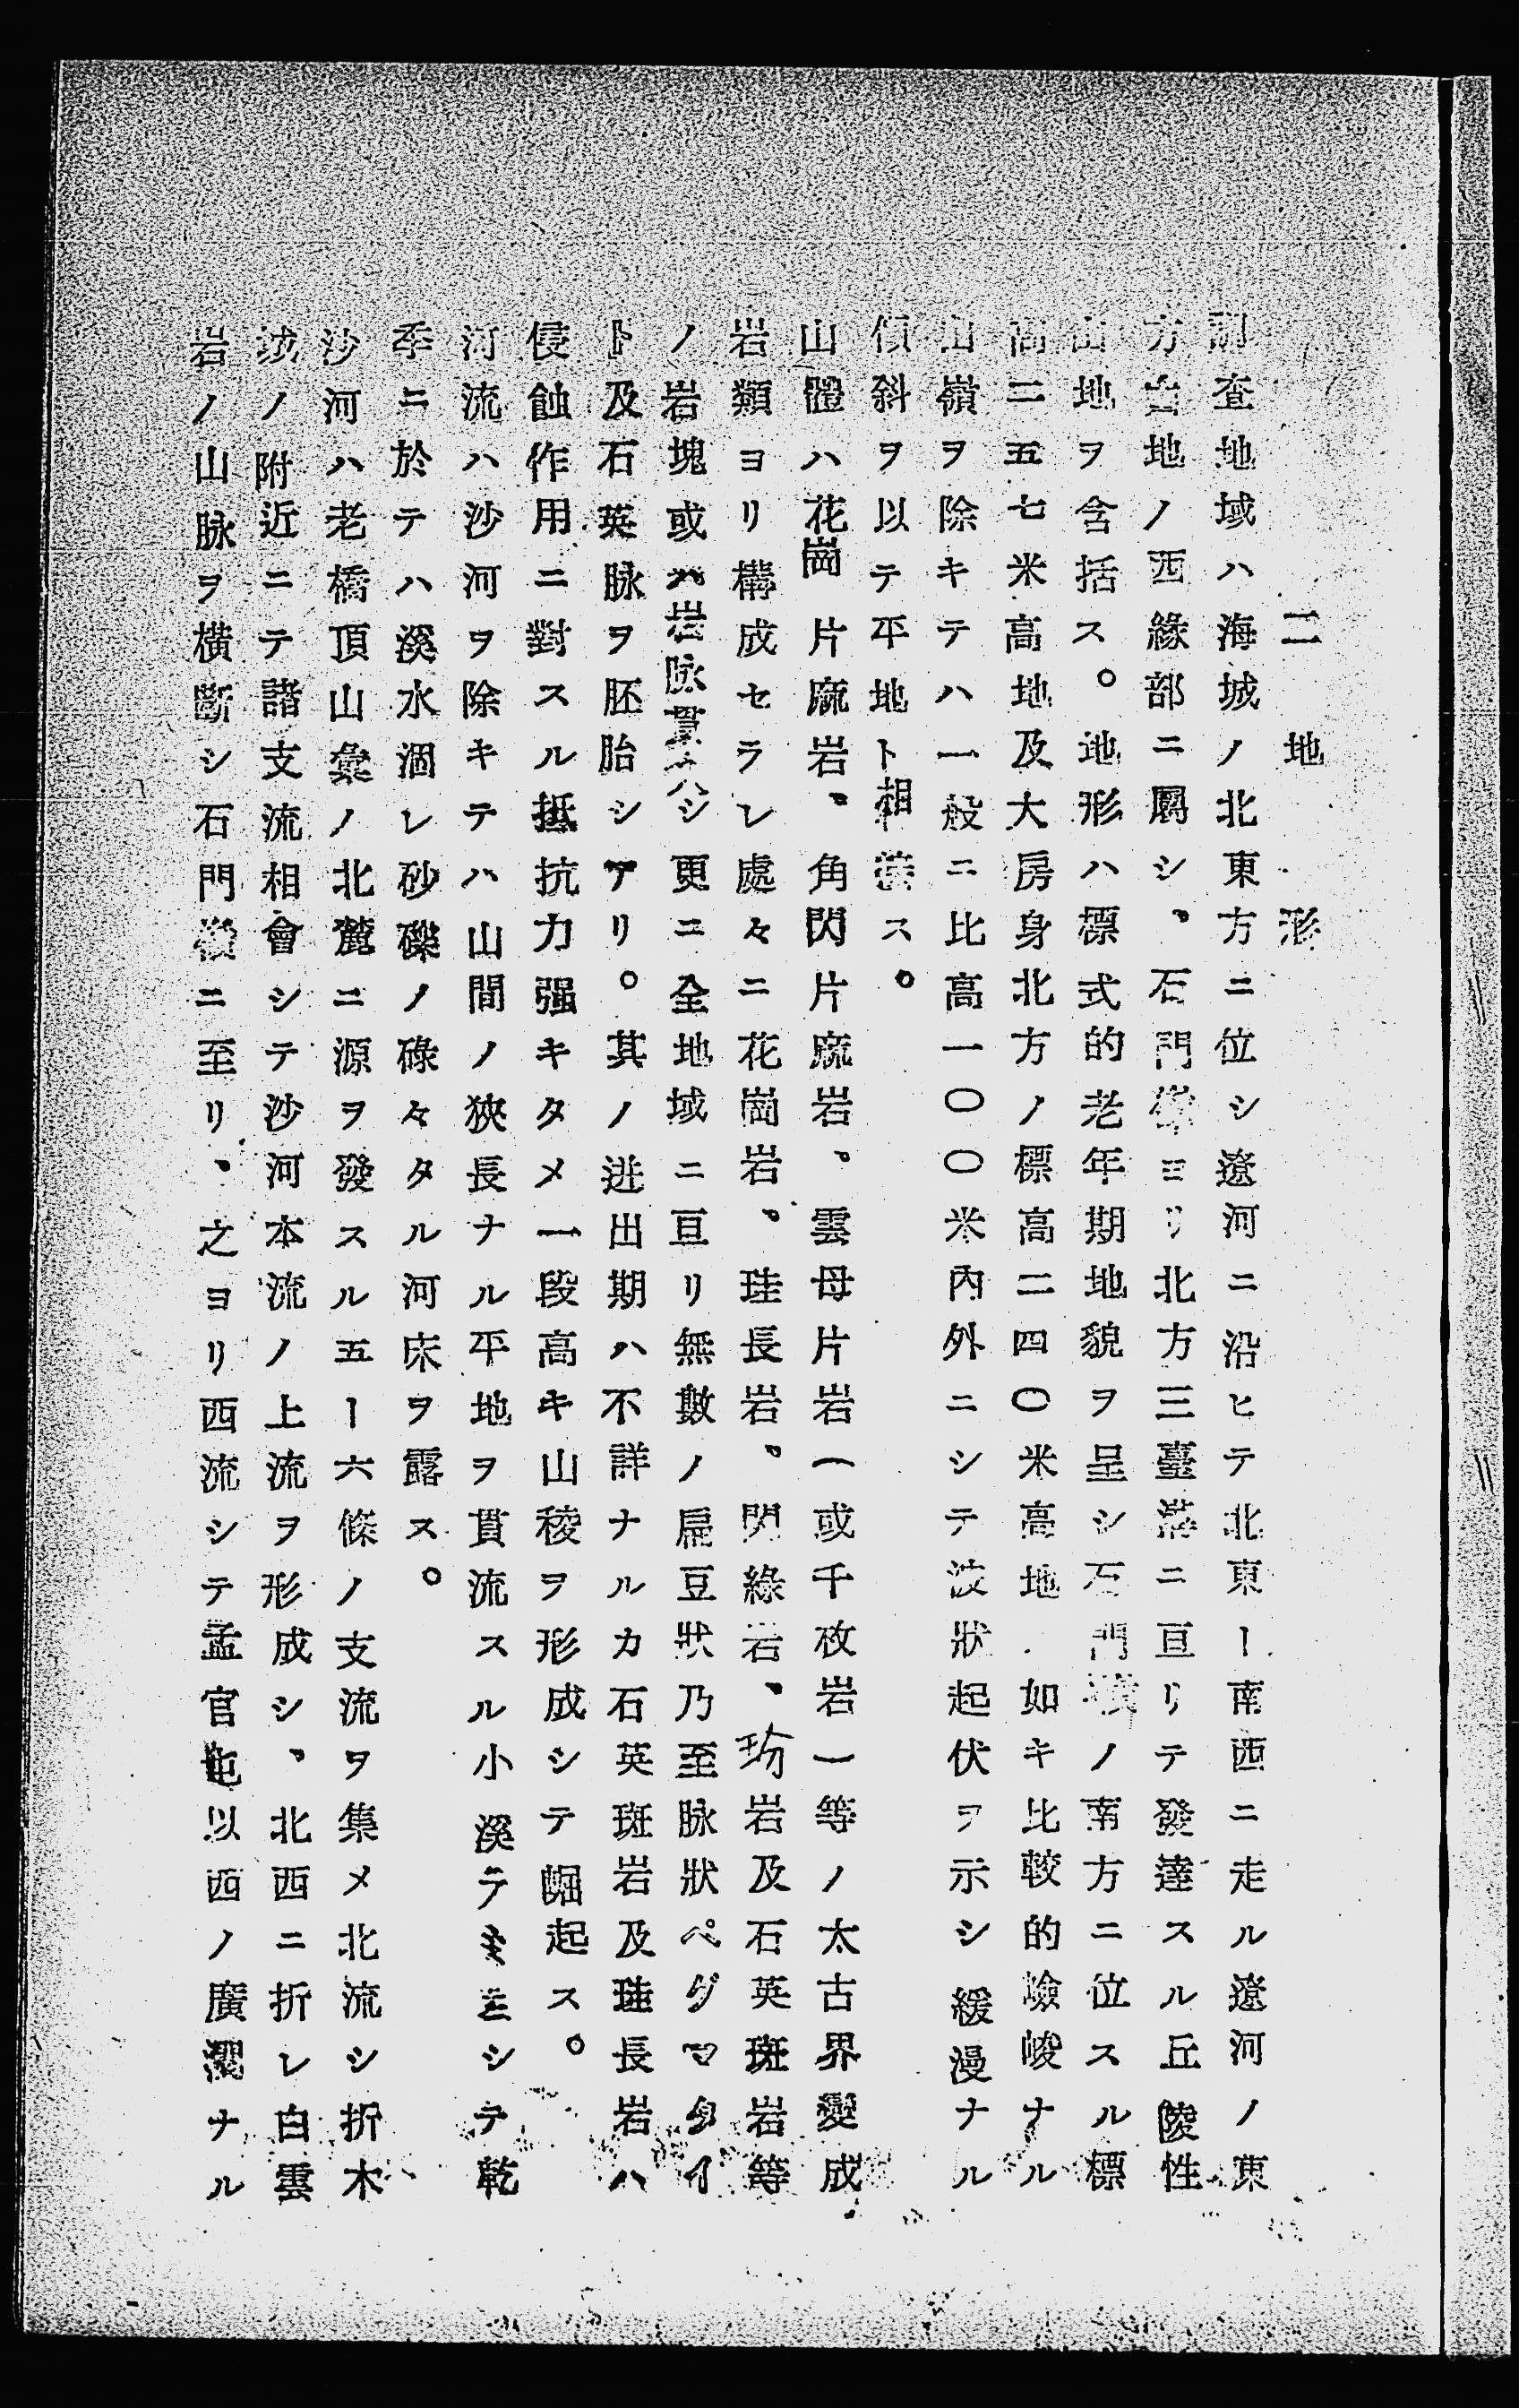 二 地形
調査地域ハ海城ノ北東方ニ位シ遼河ニ沿ヒテ北東ー南西ニ走ル遼河ノ東
方台地ノ西緣部ニ屬シ、石門嶺ヨリ北方三臺溝ニ亘リテ發達スル丘陵性
山地ヲ含括ス。地形ハ標式的老年期地貌ヲ呈シ石門嶺ノ南方ニ位スル標
高二五七米高地及大房身北方ノ標高二四〇米高地ノ如キ比較的嶮峻ナル
山嶺ヲ除キテハ一般ニ比高一〇〇米內外ニシテ波狀起伏ヲ示シ緩漫ナル
傾斜ヲ以テ平地ト相接ス。
山體ハ花崗片麻岩、角閃片麻岩、雲母片岩(或千枚岩)等ノ太古界變成
岩類ヨリ構成セラレ處々ニ花崗岩、珪長岩、閃綠岩、玢岩及石英斑岩等
ノ岩塊或ハ岩脉貫入シ更ニ全地域ニ亘リ無數ノ扁豆狀乃至脉狀ペグマタイ
ト及石英脉ヲ胚胎シアリ。其ノ迸出期ハ不詳ナルカ石英斑岩及珪長岩ハ
侵蝕作用ニ對スル抵抗力强キタメ一段高キ山稜ヲ形成シテ崛起ス。
河流ハ沙河ヲ除キテハ山間ノ狹長ナル平地ヲ貫流スル小溪ニシテ乾
季ニ於テハ溪水涸レ砂礫ノ碌々タル河床ヲ露ス。
沙河ハ老橋頂山彙ノ北麓ニ源ヲ發スル五ー六條ノ支流ヲ集メ北流シ折木
城ノ附近ニテ諸支流相會シテ沙河本流ノ上流ヲ形成シ、北西ニ折レ白雲
岩ノ山脉ヲ橫斷シ石門嶺ニ至リ、之ヨリ西流シテ孟官屯以西ノ廣濶ナル